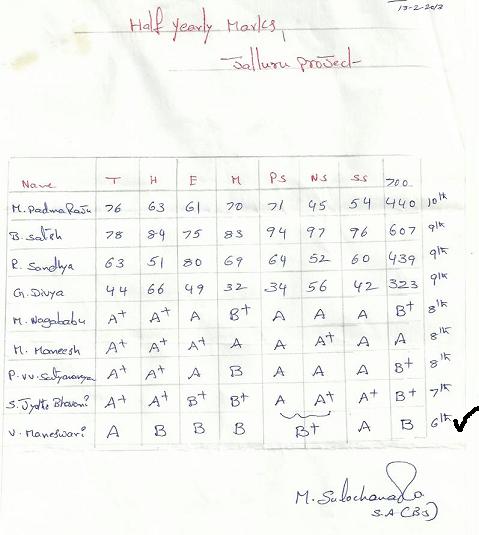 13-2-2012
Half Yearly Marks,
Jalluru project
Name T H E M PS NS SS 700
M. PadmaRaju 76 63 61 70 71 45 54 440 10th
B. Satish 78 84 75 83 94 97 96 607 9th
R. Sandhya 63 51 80 69 64 52 60 439 9th
G. Divya 44 66 49 32 34 56 42 323 9th
M. Nagababu A+ A+ A B+ A A A B+ 8th
M. Maneesh A+ A+ A A A A+ A A 8th
P.V.V. Satyanarayana A+ A+ A B A A A B+ 8th
S. Jyothi Bhavani A+ A+ B+ B+ A A+ A+ B+ 7th
V. Maneswari A B B B B+ A B 6th
M. Sulochana
S.A (B.S)